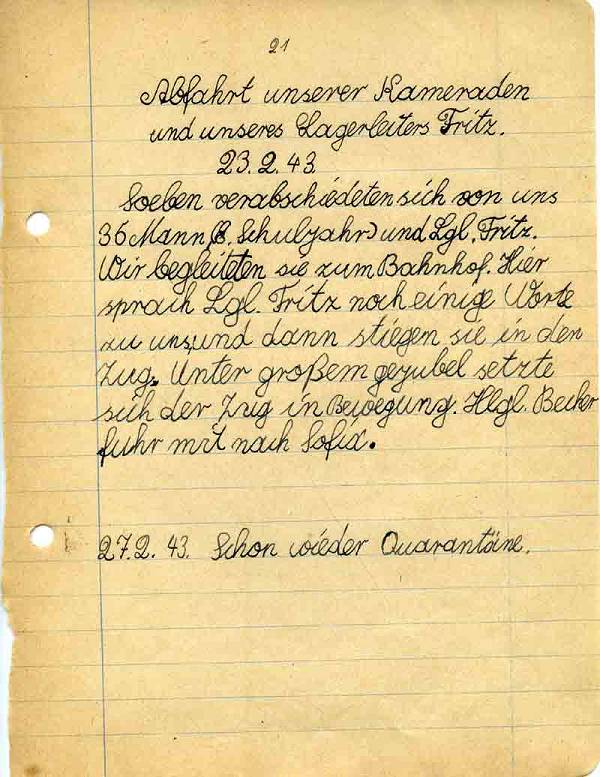 21
Abfahrt unserer Kameraden
und unseres Lagerleiters Fritz.
23.2.43
Soeben verabschiedeten sich von uns
36 Mann (8. Schuljahr) und Lgl. Fritz.
Wir begleiteten sie zum Bahnhof. Hier
sprach Lgl. Fritz noch einige Worte
zu uns, und dann stiegen sie in den
Zug. Unter großem gejubel setzte
sich der Zug in Bewegung. Hlgl. Becker
fuhr mit nach Sofia.
27.2. 43. Schon wieder Quarantäne.